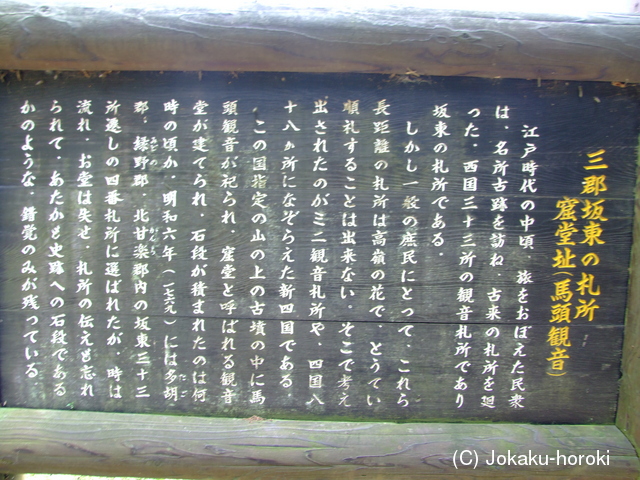 三郡坂東の札所
窟堂址(馬頭観音)
江戸時代の中頃、旅をおぼえた民衆
は、名所古跡を訪ね、古来の札所を廻
った。西国三十三所の観音札所であり
坂東の札所である。
しかし一般の庶民にとって、これら
長距離の札所は高嶺の花で、とうてい
順礼することは出来ない。そこで考え
出されたのがミニ観音札所や、四国八
十八ヵ所になぞらえた新四国である。
この国指定の山の上の古墳の中に馬
頭観音が祀られ、窟堂と呼ばれる観音
堂が建てられ、石段が積まれたのは何
時の頃か。明和六年(一七六九)には多胡
郡、緑野郡、北甘楽郡内の坂東三十三
所遷しの四番札所に選ばれたが、時は
流れ、お堂は失せ、札所の伝えも忘れ
られて、あたかも史跡への石段である
かのような、錯覚のみが残っている。
(C) Jokaku-horoki